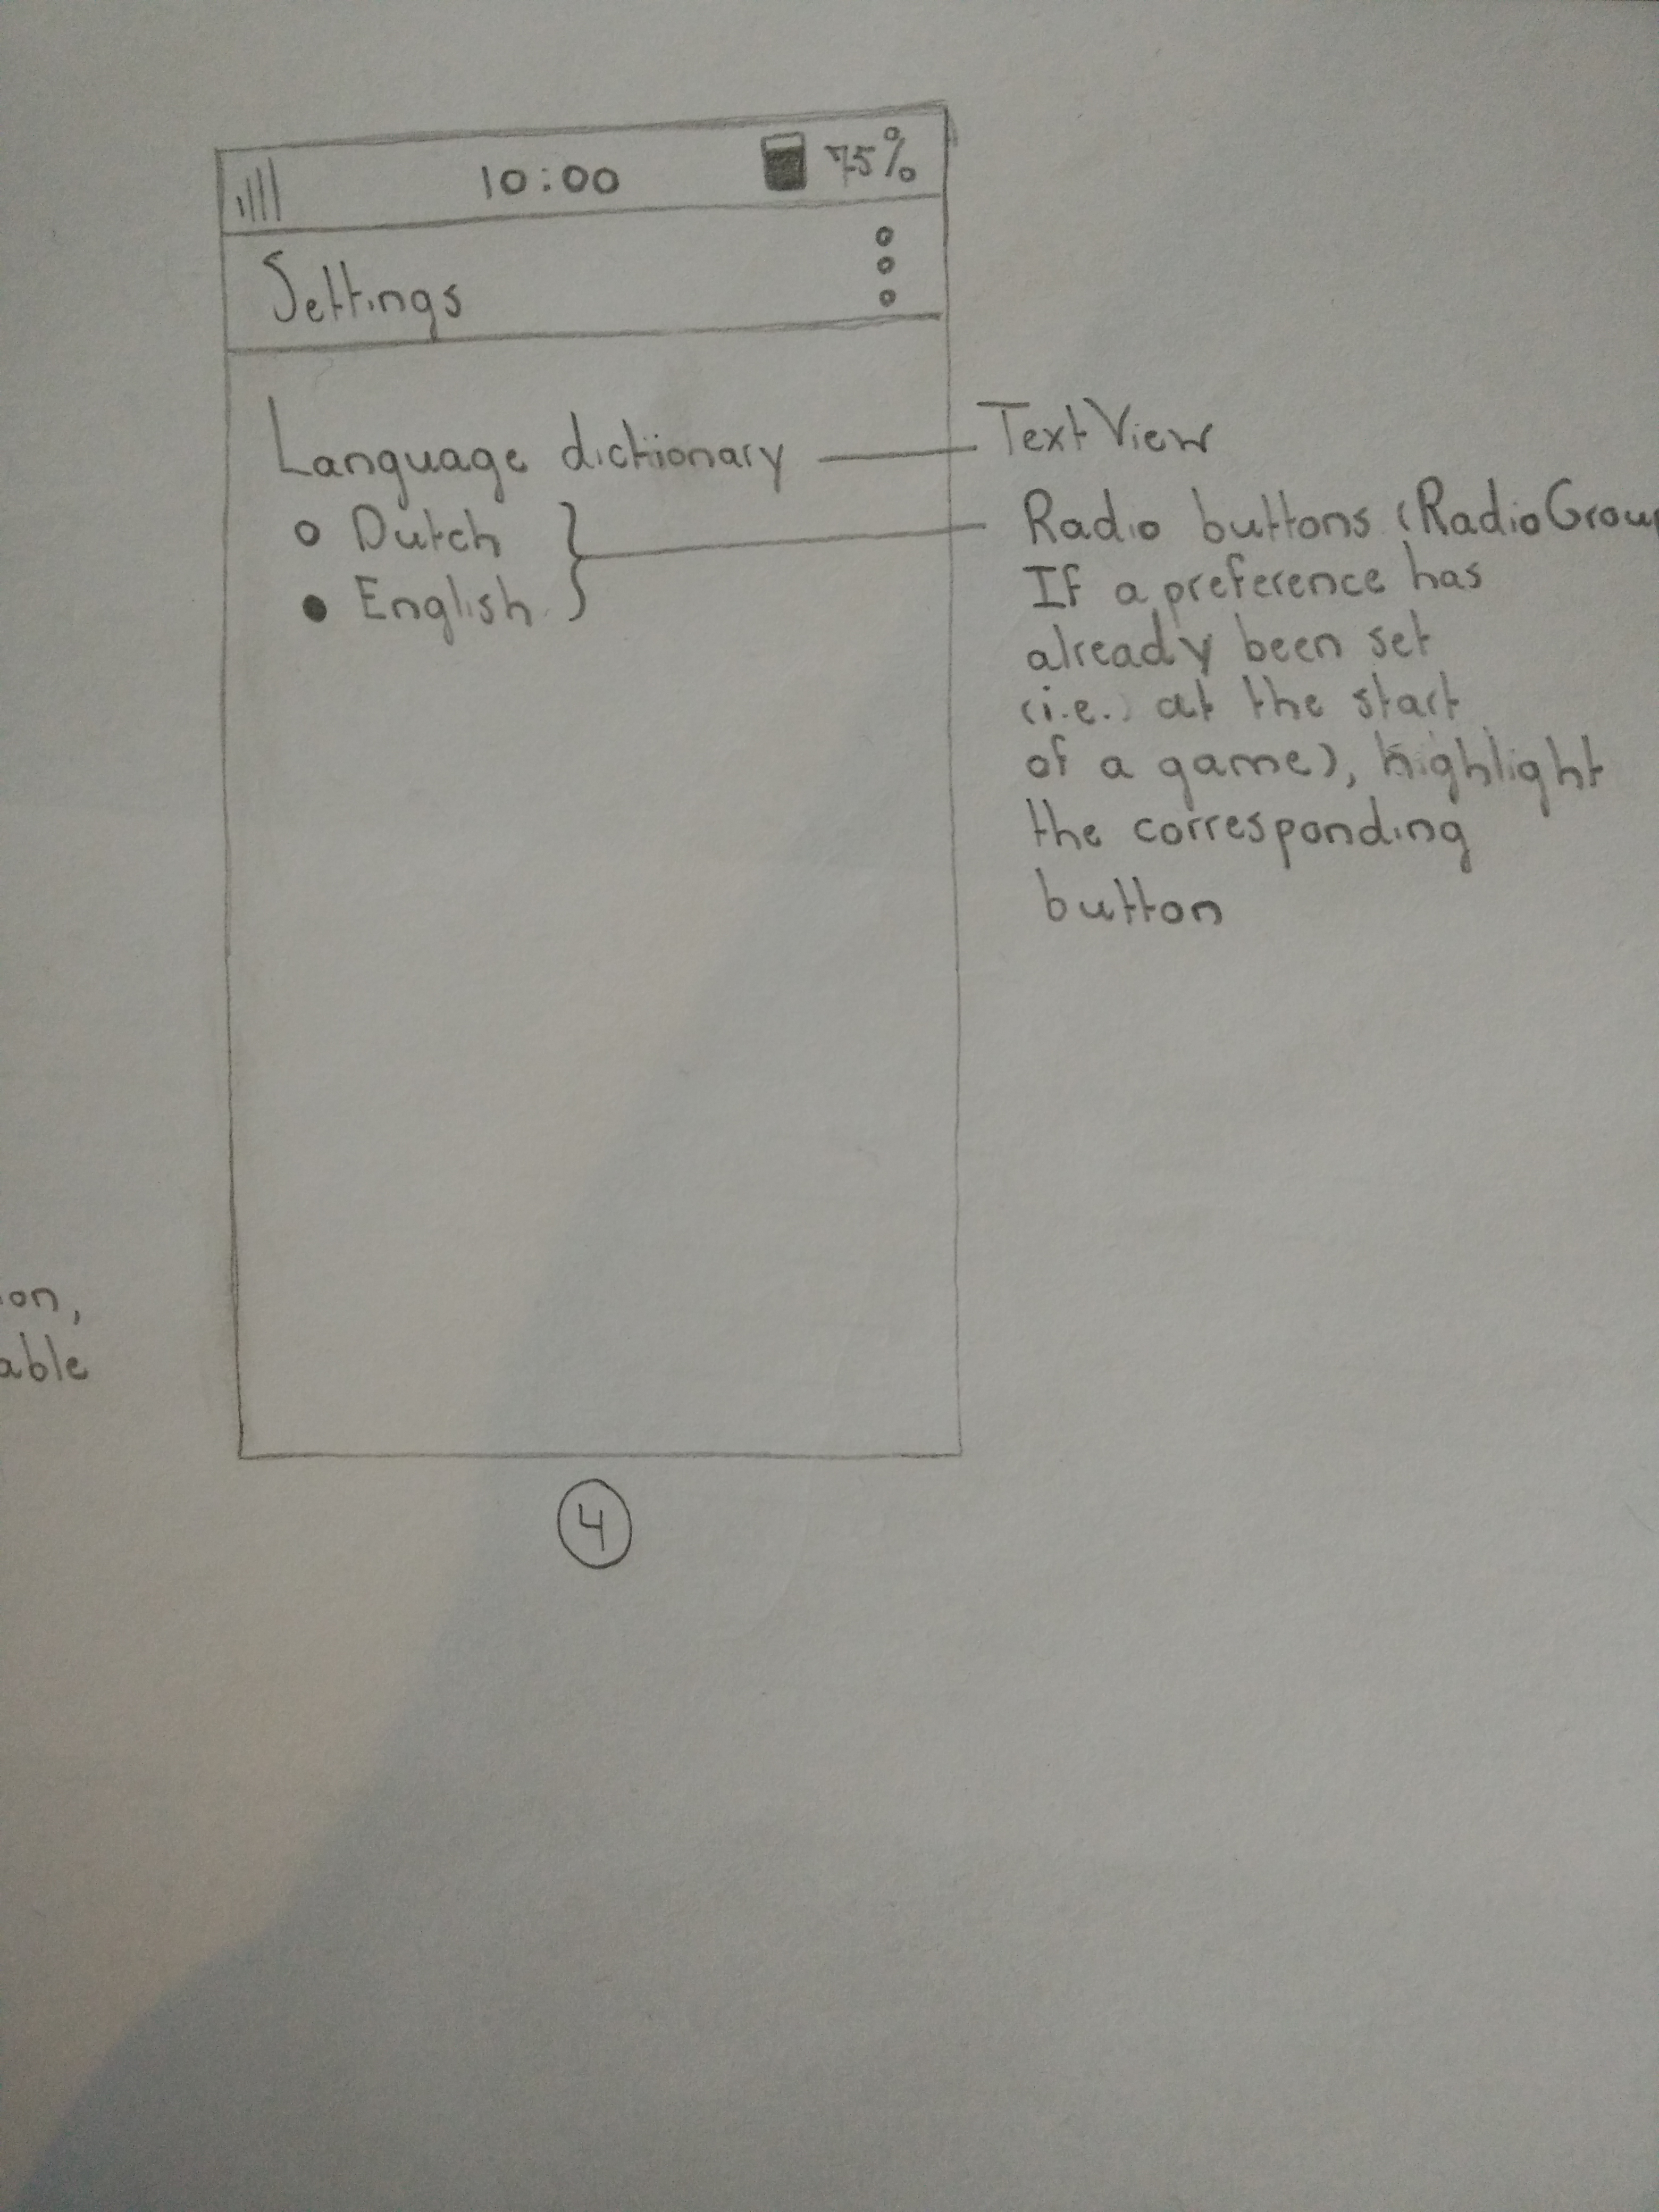 10:00 75%
Settings
Language dictionary
Dutch
English
TextView
Radio buttons (RadioGroup
If a preference has
already been set
(i.e.) at the start
of a game), highlight
the corresponding
button
on,
able
4